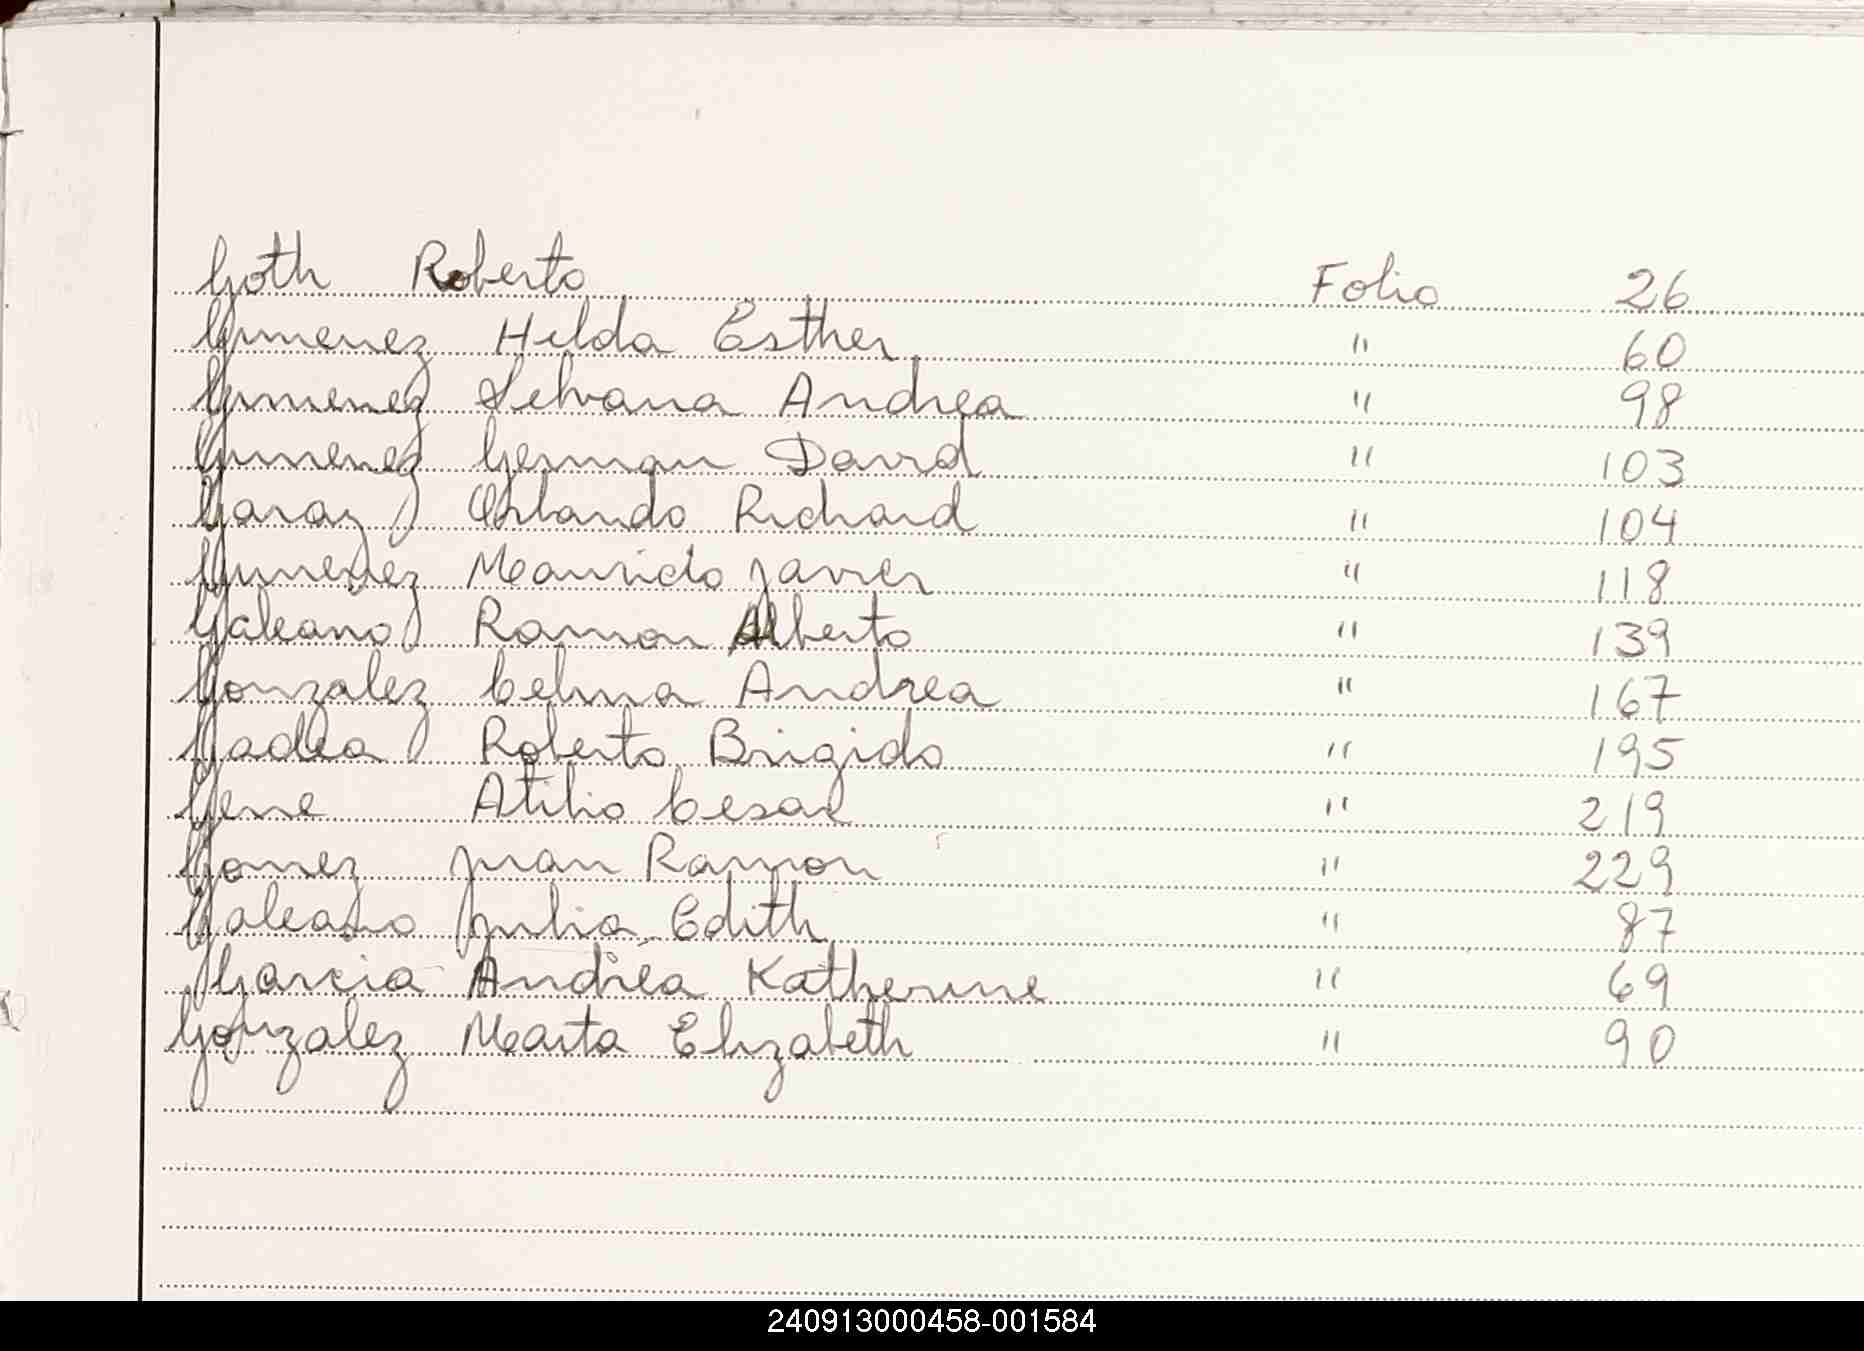 Goth Roberto Folio 26
Gimenez Hilda Esther " 60
Gimenez Silvana Andrea " 98
Gimenez German David " 103
Garay Orlando Richard " 104
Gimenez Mauricio Javier " 118
Galeano Ramon Alberto " 139
Gonzalez Celina Andrea " 167
Gadea Roberto Brigido " 195
Gene Atilio Cesar " 219
Gomez Juan Ramon " 229
Galeano Julia Edith " 87
Garcia Andrea Katherine " 69
Gonzalez Marta Elizabeth " 90
240913000458-001584